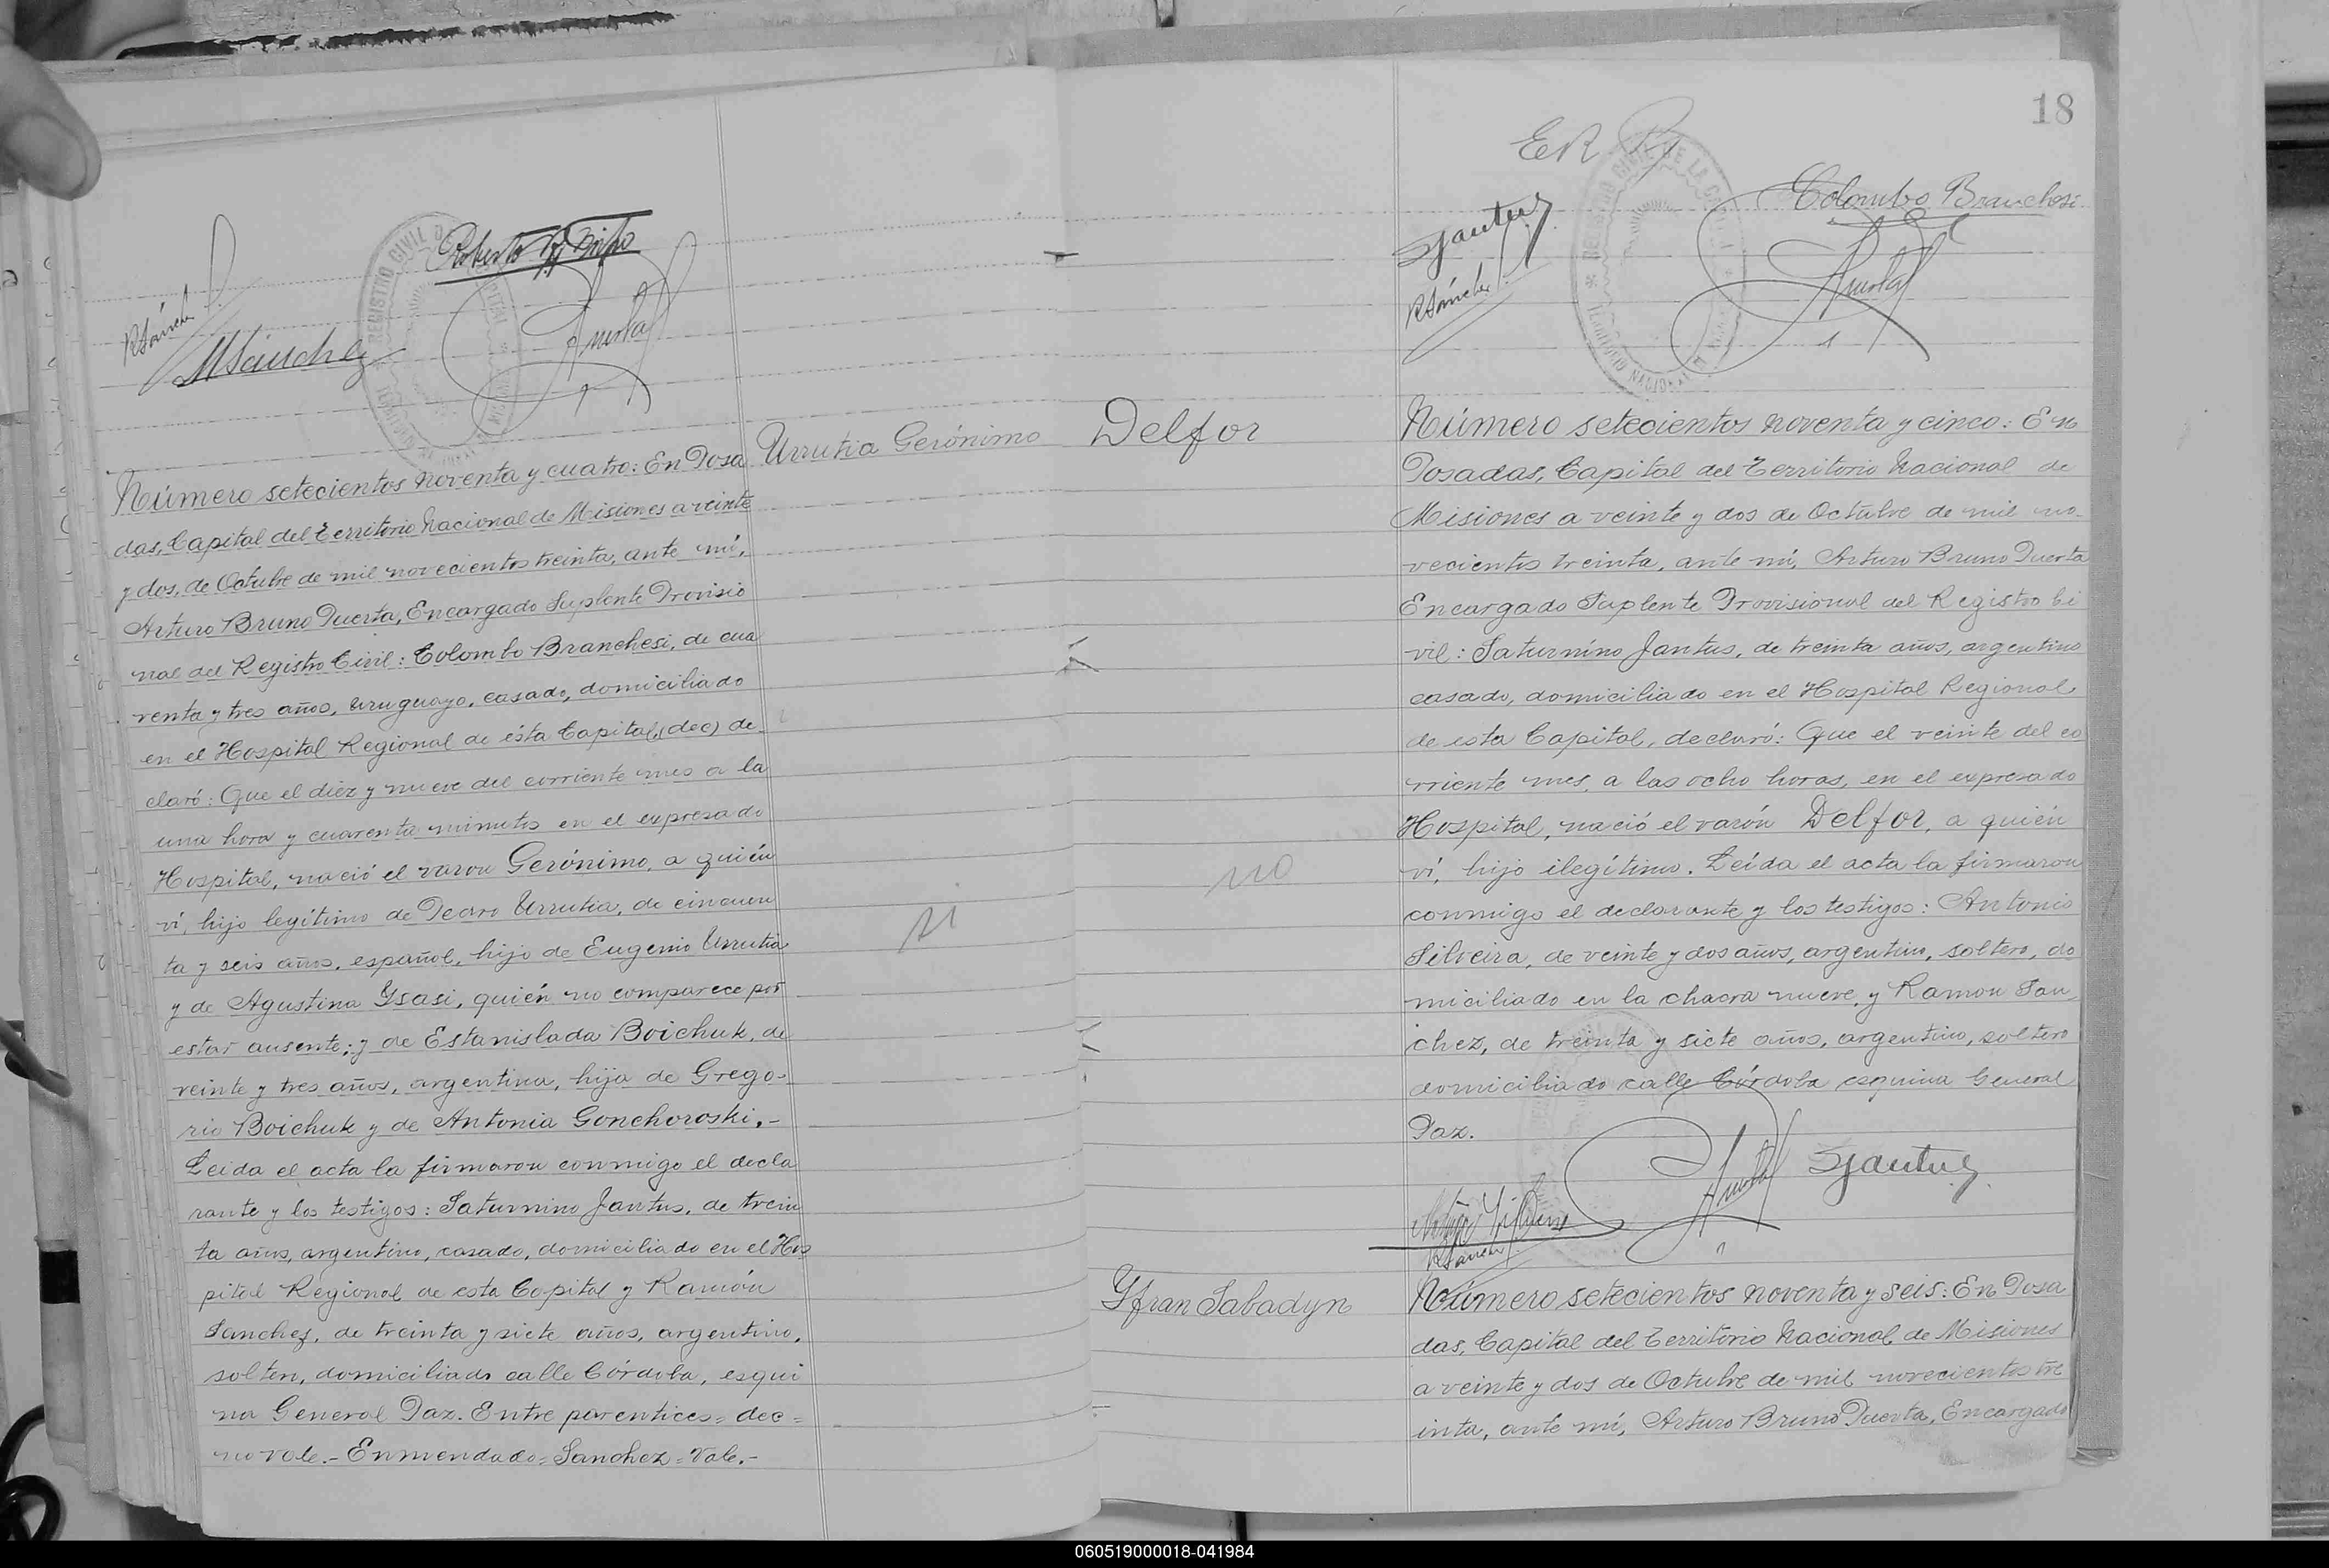 Roberto
RSánchez
MSánchez
REGISTRO CIVIL D
Urrutia Gerónimo
Número setecientos noventa y cuatro: En Posa
das, Capital del Territorio Nacional de Misiones a veinte
y dos, de Octubre de mil novecientos treinta, ante mí,
Arturo Bruno Puerta, Encargado Suplente Provisio
nal del Registro Civil: Colombo Branchesi, de cua
renta y tres años, uruguayo, casado, domiciliado
en el Hospital Regional de ésta Capital, (dec) de
claró: Que el diez y nueve del corriente mes a la
una hora y cuarenta minutos en el expresado
Hospital, nació el varon Gerónimo, a quién
ví, hijo legítimo de Pedro Urrutia, de cincuen
ta y seis años, español, hijo de Eugenio Urrutia
y de Agustina Ysasi, quién no comparece por
estar ausente; y de Estanislada Boichuk, de
veinte y tres años, argentina, hija de Grego-
rio Boichuk y de Antonia Gonchoroski.-
Leida el acta la firmaron conmigo el decla
rante y los testigos: Saturnino Jantus, de trein
ta años, argentino, casado, domiciliado en el Hos
pital Regional de esta Capital y Ramón
Sanchez, de treinta y siete años, argentino,
soltero, domiciliado calle Córdoba, esqui
na General Paz. Entre parentices= dec=
no vale.- Enmendado= Sanchez= Vale.-
18
Colombo Branchesi
SJantus
RSánchez
REGISTRO CIVIL DE LA CAPITAL
TERRITORIO NACIONAL DE MISIONES
Delfor
Número setecientos noventa y cinco: En
Posadas, Capital del Territorio Nacional de
Misiones a veinte y dos de Octubre de mil no-
vecientos treinta, ante mí, Arturo Bruno Puerta
Encargado Suplente Provisional del Registro Ci
vil: Saturnino Jantus, de treinta años, argentino
casado, domiciliado en el Hospital Regional
de esta Capital, declaró: Que el veinte del co
rriente mes, a las ocho horas, en el expresado
Hospital, nació el varón Delfor, a quién
ví, hijo ilegítimo. Leída el acta la firmaron
conmigo el declarante y los testigos: Antonio
Silveira, de veinte y dos años, argentino, soltero, do
miciliado en la chacra nueve, y Ramon San
chez, de treinta y siete años, argentino, soltero
domiciliado calle Córdoba esquina General
Paz.
no
SJantus
RSánchez
Yfran Sabadyn
Número setecientos noventa y seis: En Posa
das, Capital del Territorio Nacional de Misiones
a veinte y dos de Octubre de mil novecientos tre
inta, ante mí, Arturo Bruno Puerta, Encargado
060519000018-041984